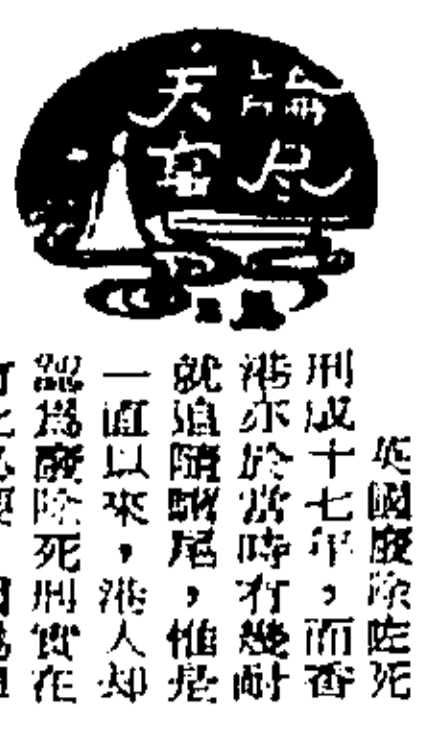 論尽
天
英國廢除咗死
刑成十七年，而香
港亦於當時冇幾耐
就追隨驥尾，惟是
一直以來，港人却
為廢除死刑實在